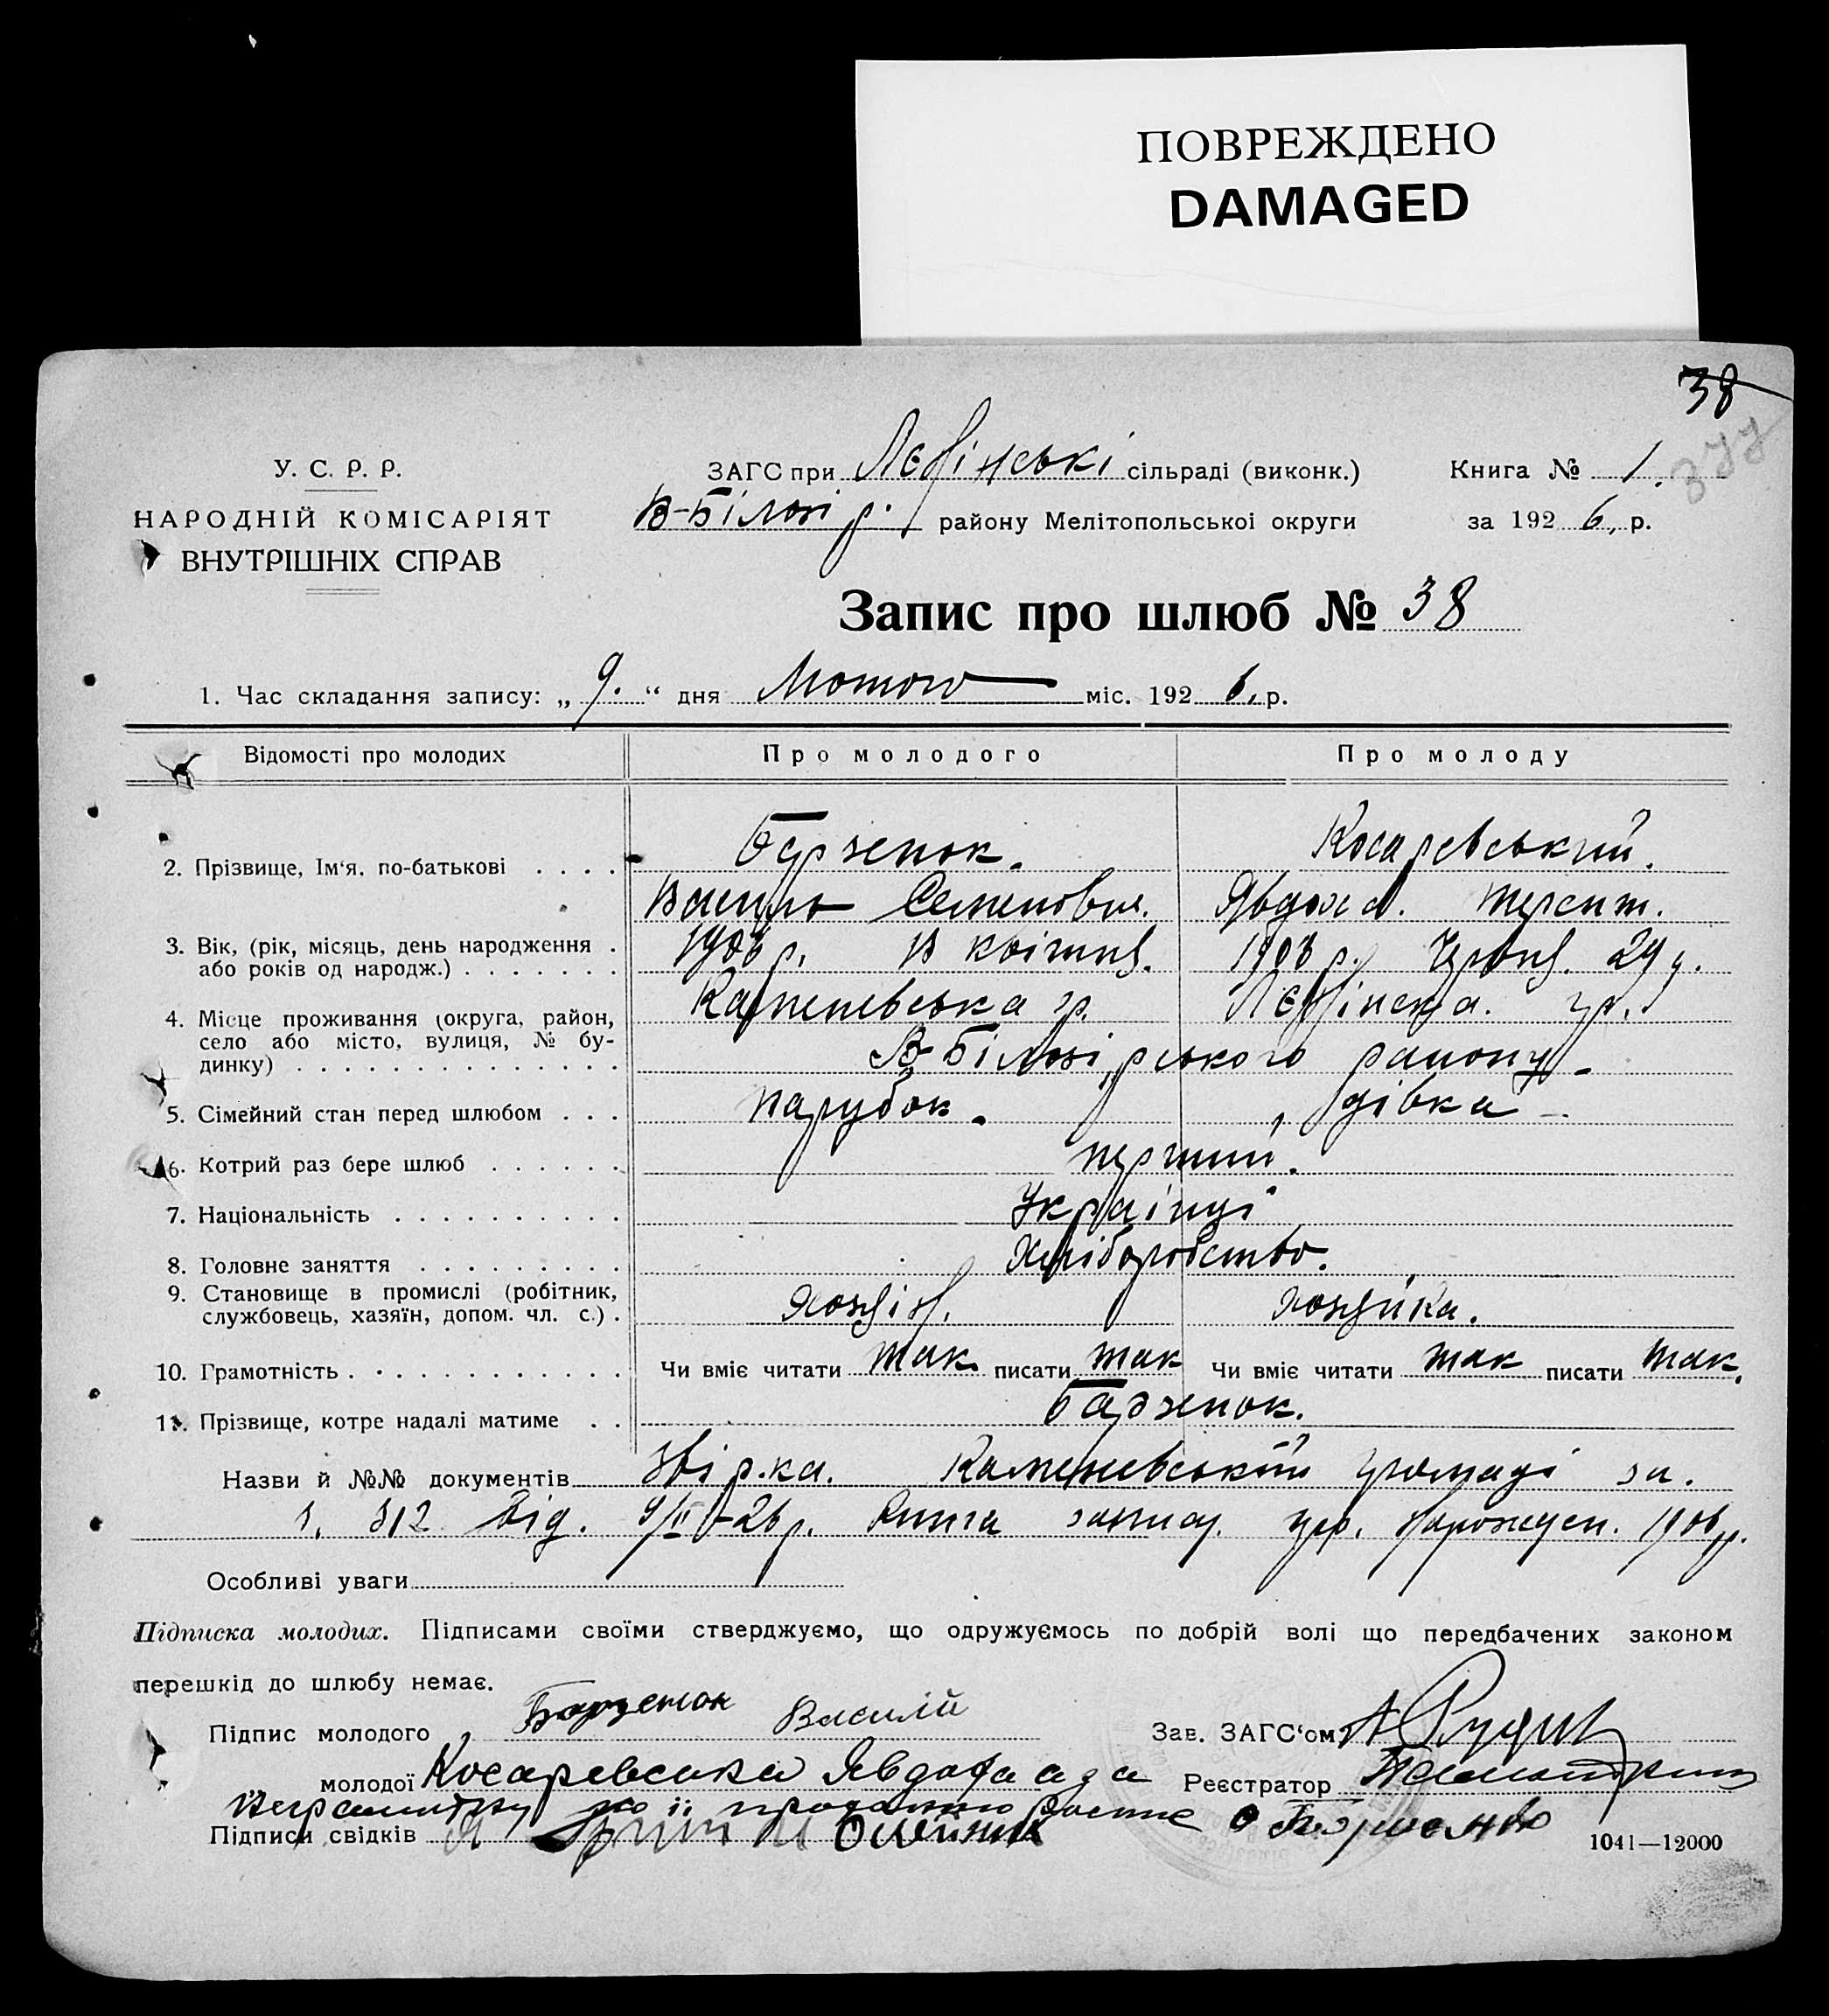 ПОВРЕЖДЕНО
DAMAGED
38
377
У. С. Р. Р.
НАРОДНІЙ КОМІСАРІЯТ
ВНУТРІШНІХ СПРАВ
ЗАГС при сільраді (виконк.) Книга № 1.
В-Білозір. району Мелітопольської округи за 1926, р.
Запис про шлюб № 38
1. Час складання запису: „9." дня Лютого міс. 1926, р.
Відомості про молодих Про молодого Про молоду
2. Прізвище, Ім'я, по-батькові . . . . Барзенок. Косаревський.
Василь Семенович. Явдоха. Терент.
3. Вік, (рік, місяць, день народження . 1906 р. квітня. 1908 р. 29 д.
або років од народж.) . . . . . . .
4. Місце проживання (округа, район, Каменевська гр. гр.
село або місто, вулиця, № бу-
динку) . . . . . . . . . . . . . . . В-Білозірського району
5. Сімейний стан перед шлюбом . . . парубок. дівка
6. Котрий раз бере шлюб . . . . . . перший.
7. Національність . . . . . . . . . . Українці
8. Головне заняття . . . . . . . . . Хліборобство.
9. Становище в промислі (робітник, хозяїн. хозяйка.
службовець, хазяїн, допом. чл. с.) .
10. Грамотність . . . . . . . . . . . Чи вміє читати так писати так Чи вміє читати так писати так.
11. Прізвище, котре надалі матиме . . Барзенок.
Назви й №№ документів Каменевський громаді за.
ч. 312 від. 9/II-26 р. Книга запису нарожден. 1908 р.
Особливі уваги
Підписка молодих. Підписами своїми стверджуємо, що одружуємось по добрій волі що передбачених законом
перешкід до шлюбу немає.
Підпис молодого Барзенок Василій Зав. ЗАГС'ом
„ молодої Косаревська Явдоха а за Реєстратор
неграмотну по її проханню
Підписи свідків Олейник
1041—12000